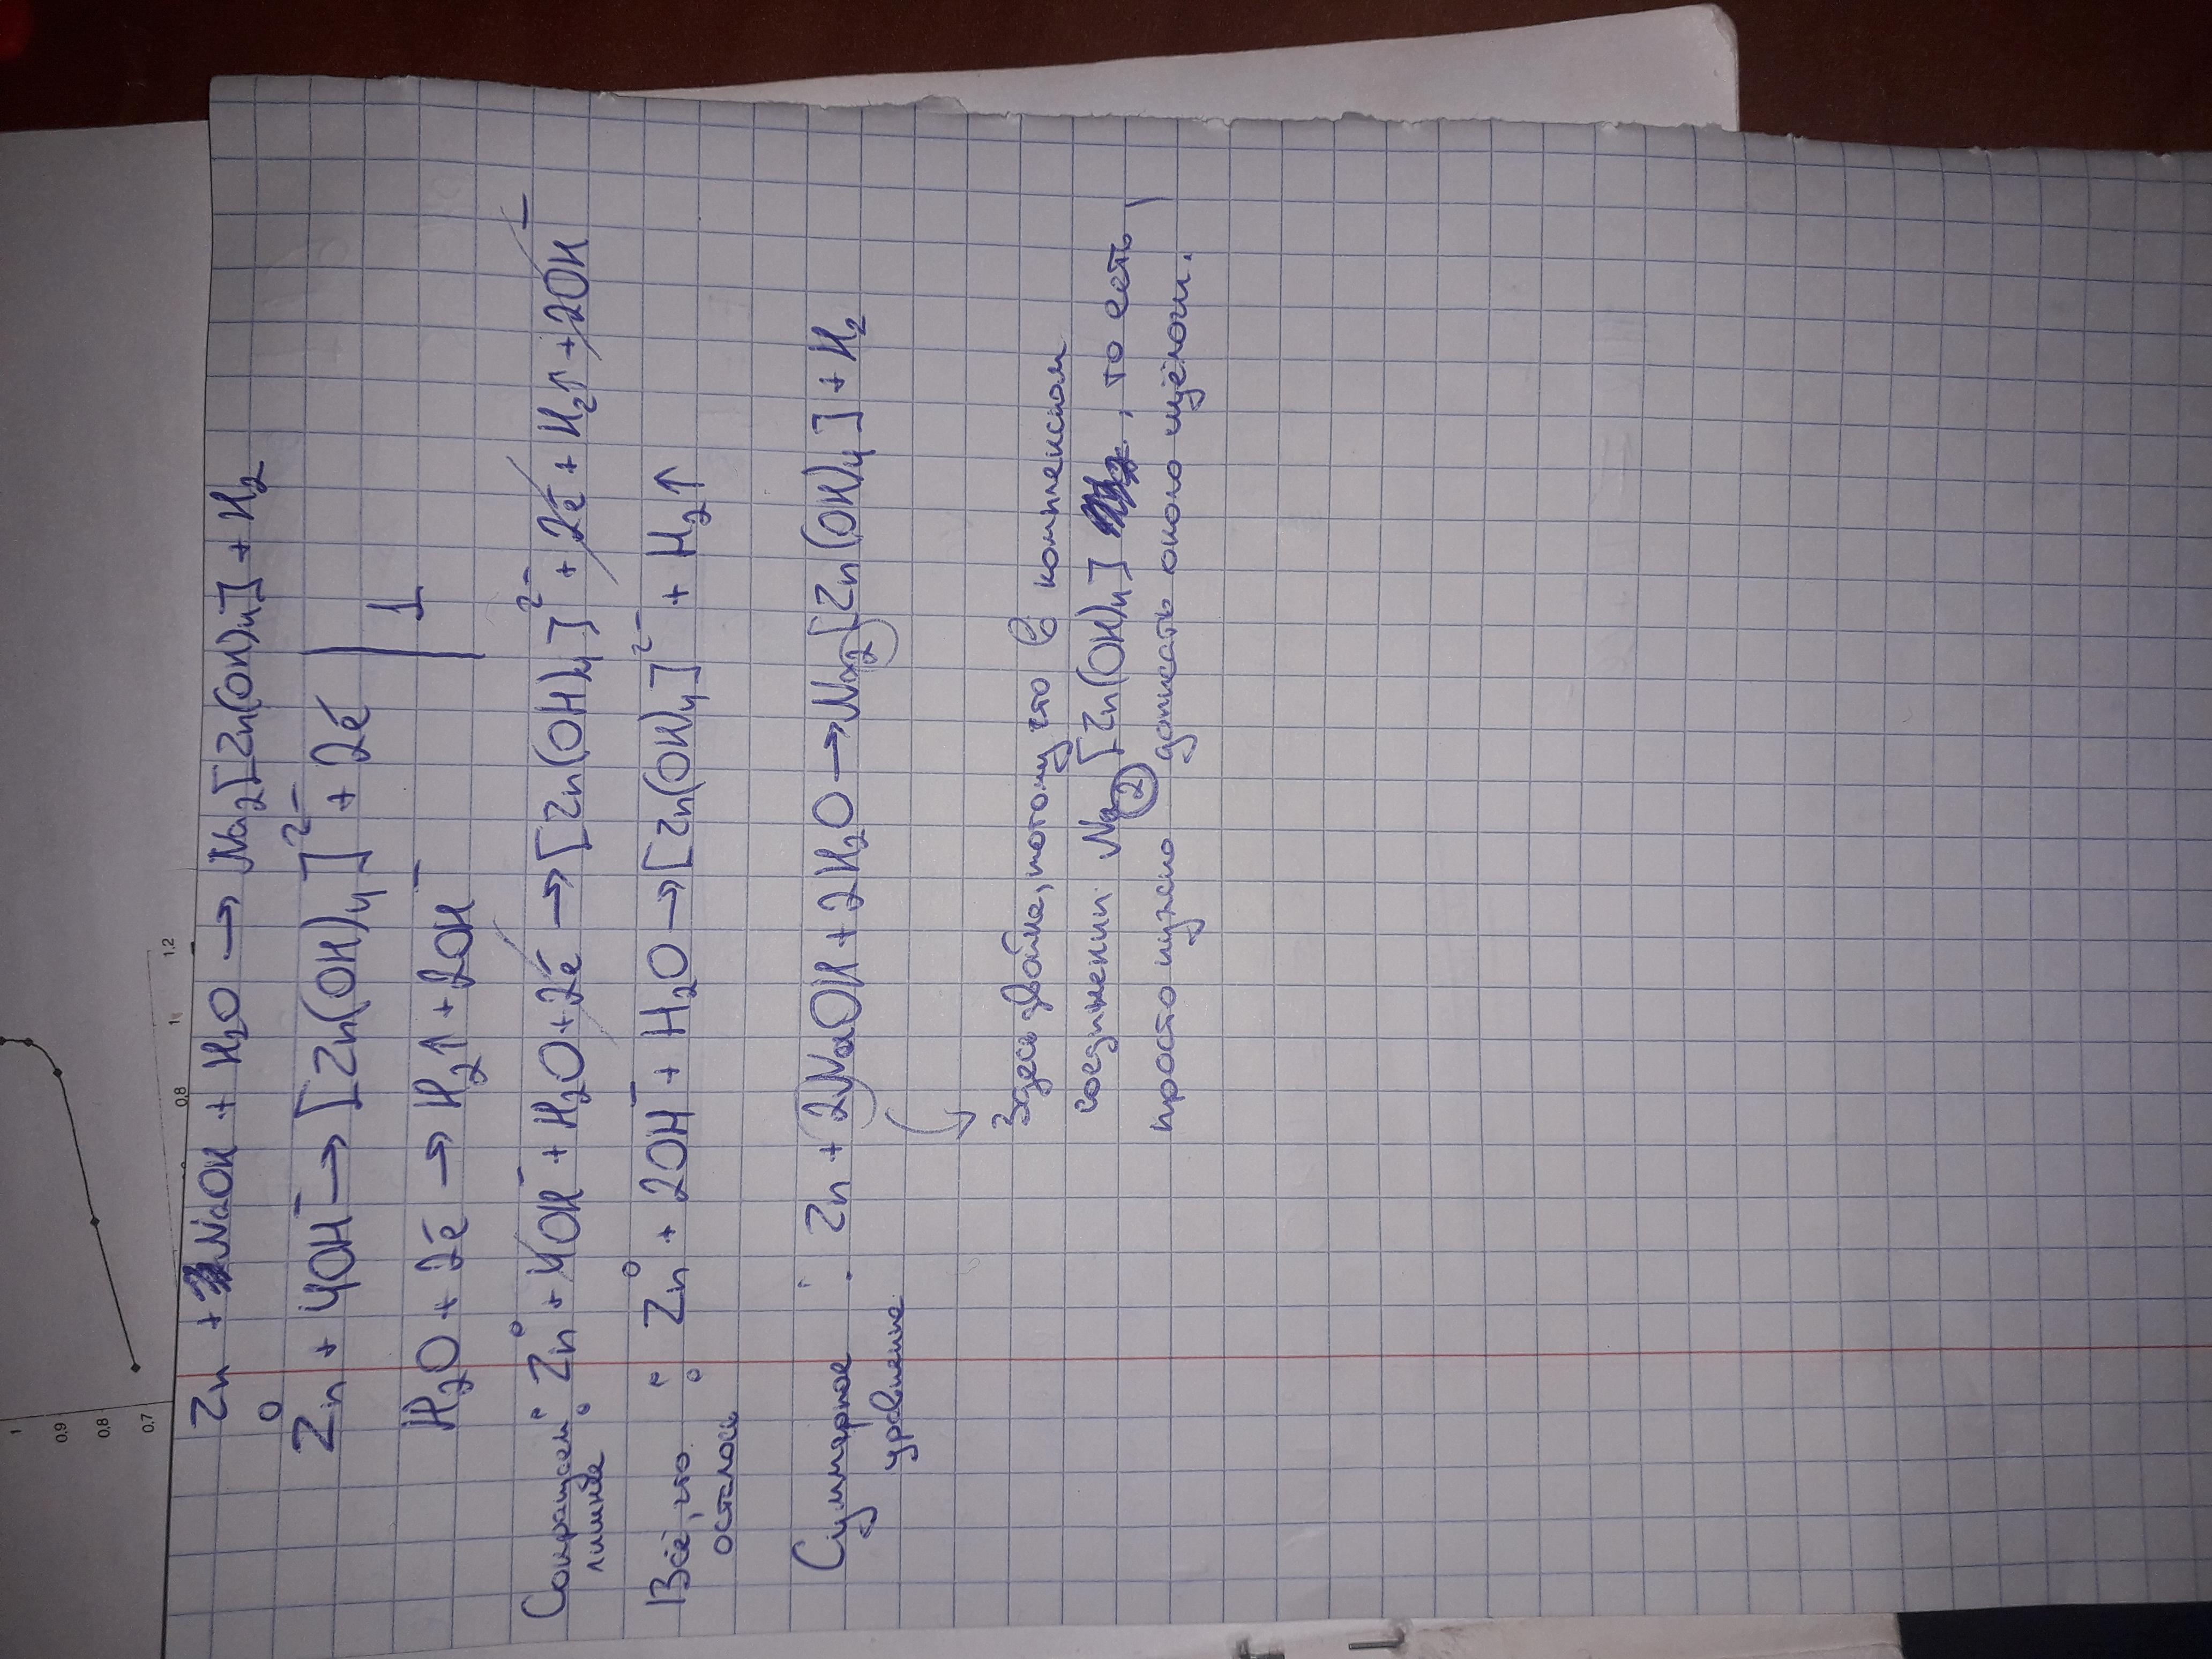 Zn + NaOH + H₂O → Na₂[Zn(OH)₄] + H₂
Zn⁰ + 4OH⁻ → [Zn(OH)₄]²⁻ + 2ē | 1
H₂O + 2ē → H₂↑ + 2OH⁻
Сокращаем лишнее: Zn⁰ + 4OH⁻ + H₂O + 2ē → [Zn(OH)₄]²⁻ + 2ē + H₂↑ + 2OH⁻
Всё, что осталось: Zn⁰ + 2OH⁻ + H₂O → [Zn(OH)₄]²⁻ + H₂↑
Суммарное уравнение: Zn + 2NaOH + 2H₂O → Na₂[Zn(OH)₄] + H₂
Здесь двойка, потому что в комплексном
соединении Na₂[Zn(OH)₄], то есть,
просто нужно дописать около щёлочи.
1
0,9
0,8
0,7
0,8
1
1,2